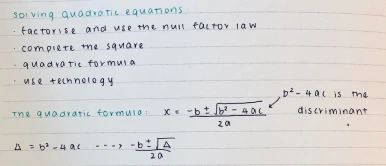 solving quadratic equations
· factorise and use the null factor law
· complete the square
· quadratic formula
· use technology
b² - 4ac is the
the quadratic formula: x = -b ± √b² - 4ac / 2a
discriminant
Δ = b² - 4ac ---> -b ± √Δ / 2a